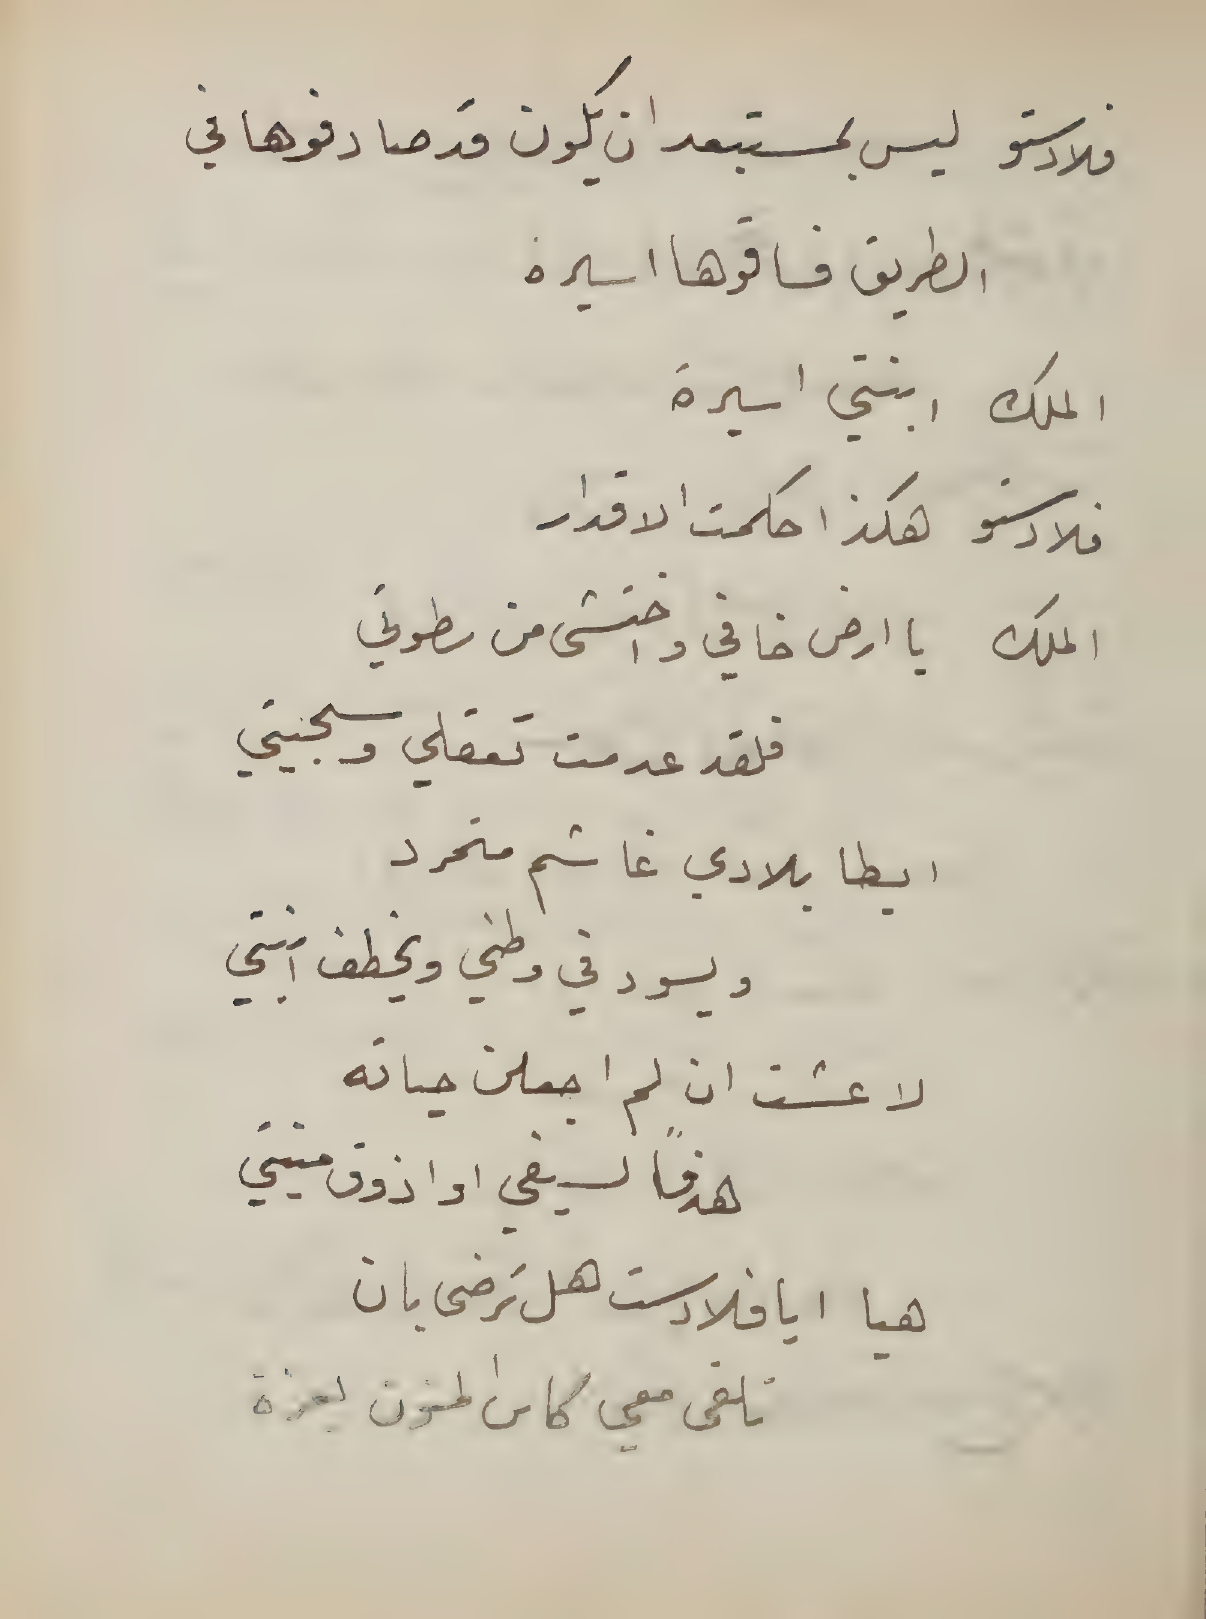 فلادستو ليس بمستبعد ان يكون قد صادفوها في
الطريق فساقوها اسيرة
الملك ابنتي اسيرة
فلادستو هكذا حكمت الاقدار
الملك يا ارض خافي واختشى من سطوتي
فلقد عدمت تعقلي وسجنيتي
ايطا بلادي غاشم متمرد
ويسود في وطني ويخطف ابنتي
لا عشت ان لم اجعلن حياته
هدفاً لسيفي او اذوق منيتي
هيا ايا فلادست هل ترضى بان
تلقى معي كاس المنون بعزة